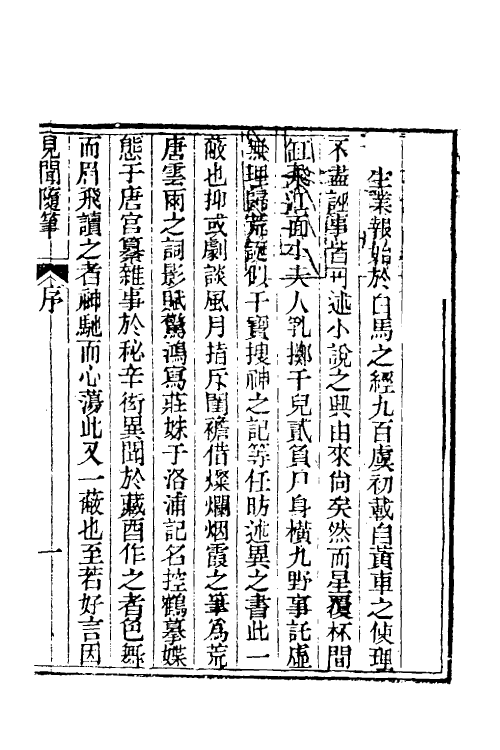 生業報始於白馬之經九百虞初載自黃車之使理
不盡誣事皆可述小說之興由來尚矣然而星覆杯間
虹飛道面小夫人乳擲千兒貳負尸身橫九野事託虛
無理歸荒誕似干寶搜神之記等任昉述異之書此一
蔽也抑或劇談風月指斥閨襜借燦爛烟霞之筆為荒
唐雲雨之詞影賦驚鴻寫莊姝于洛浦記名控鶴摹媟
態于唐宮纂雜事於秘辛衒異聞於藏酉作之者色舞
而眉飛讀之者神馳而心蕩此又一蔽也至若好言因
見聞隨筆 序 一